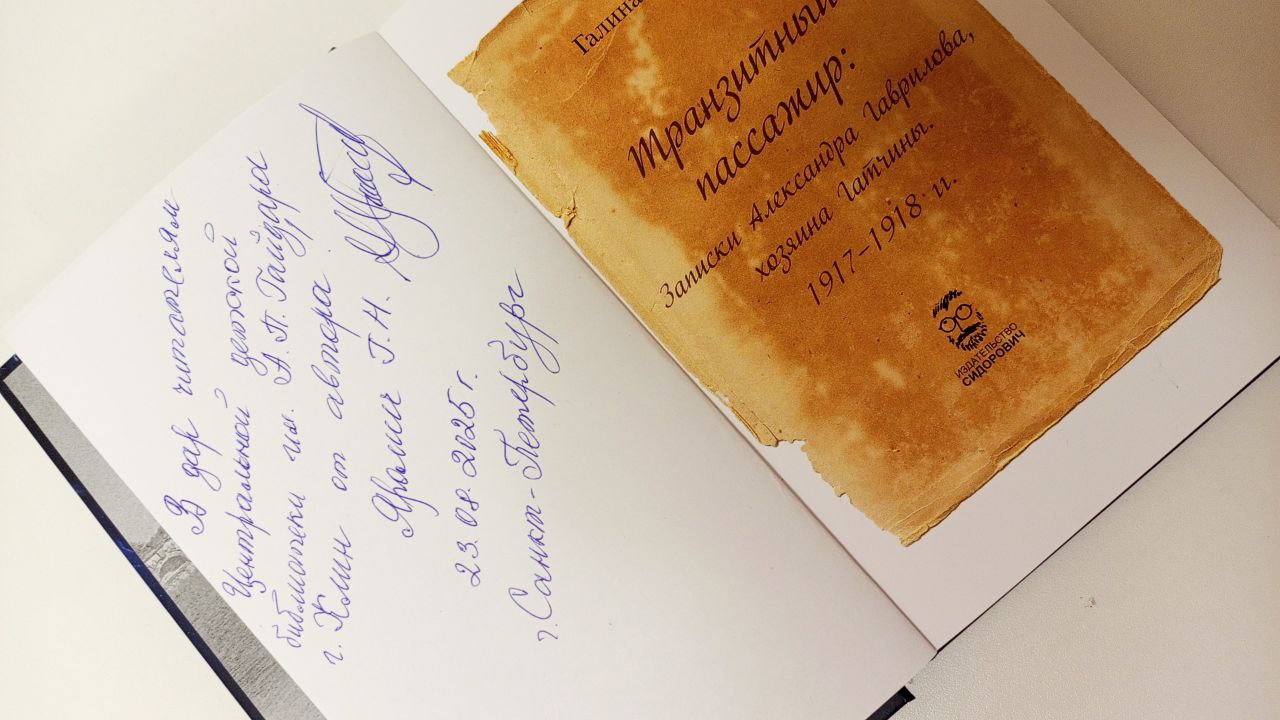 В дар читателям
Центральной детской
библиотеки им. А. П. Гайдара
г. Клин от автора
Ярмыч Г. Н.
23. 08. 2025 г.
г. Санкт-Петербург
Галина
Транзитный
пассажир:
Записки Александра Гаврилова,
хозяина Гатчины.
1917–1918 гг.
ИЗДАТЕЛЬСТВО
СИДОРОВИЧ